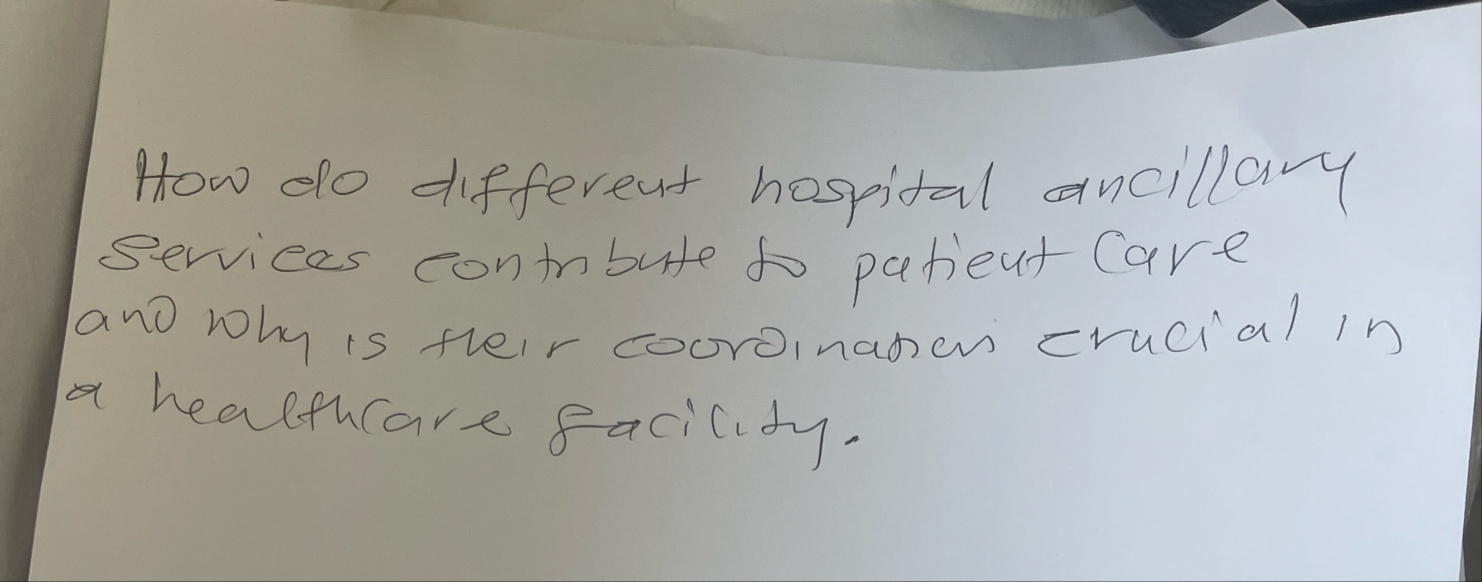 How do different hospital ancillary
services contribute to patient Care
and why is their coordination crucial in
a healthcare facility.